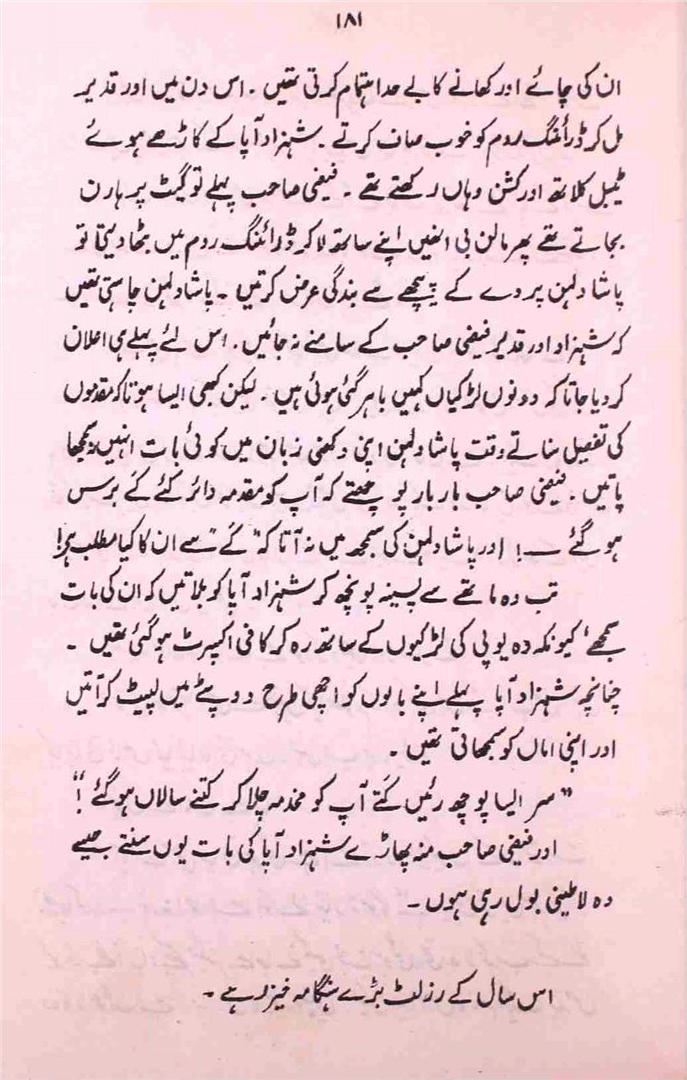 ۱۸۱
ان کی چائے اور کھانے کا بے حد اہتمام کرتی تھیں ۔ اس دن میں اور قدیر
مل کر ڈرائنگ روم کو خوب صاف کرتے ۔ شہزاد آپا کے کاڑھے ہوئے
ٹیبل کلاتھ اور کشن وہاں رکھتے تھے ۔ فیضی صاحب پہلے تو گیٹ پر ہارن
بجاتے تھے پھر مالن بی انھیں اپنے ساتھ لا کر ڈرائنگ روم میں بٹھا دیتا تو
پاشا دلہن پردے کے پیچھے سے بندگی عرض کرتیں ۔ پاشا دلہن چاہتی تھیں
کہ شہزاد اور قدیر فیضی صاحب کے سامنے نہ جائیں ۔ اس لئے پہلے ہی اعلان
کر دیا جاتا کہ دونوں لڑکیاں کہیں باہر گئی ہوئی ہیں ۔ لیکن کبھی ایسا ہوتا کہ مقدموں
کی تفصیل سناتے وقت پاشا دلہن اپنی دکھنی زبان میں کوئی بات انہیں نہ سمجھا
پاتیں ۔ فیضی صاحب بار بار پوچھتے کہ آپ کو مقدمہ دائر کئے کَے برس
ہو گئے ـــ ! اور پاشا دلہن کی سمجھ میں نہ آتا کہ "کَے" سے ان کا کیا مطلب ہے!
تب وہ ماتھے سے پسینہ پونچھ کر شہزاد آپا کو بلاتیں کہ ان کی بات
سمجھے' کیونکہ وہ یوپی کی لڑکیوں کے ساتھ رہ کر کافی اکسپرٹ ہو گئی تھیں ۔
چنانچہ شہزاد آپا پہلے اپنے بالوں کو اچھی طرح دوپٹے میں لپیٹ کر آتیں
اور اپنی اماں کو سمجھاتی تھیں ۔
"سر ایسا پوچھ رئیں کَتے آپ کو مخدمہ چلا کر کتنے سالاں ہو گئے !"
اور فیضی صاحب منہ پھاڑے شہزاد آپا کی بات یوں سنتے جیسے
وہ لاطینی بول رہی ہوں ۔
اس سال کے رزلٹ بڑے ہنگامہ خیز رہے ۔